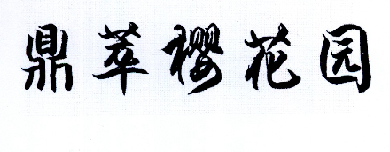 鼎萃樱花园